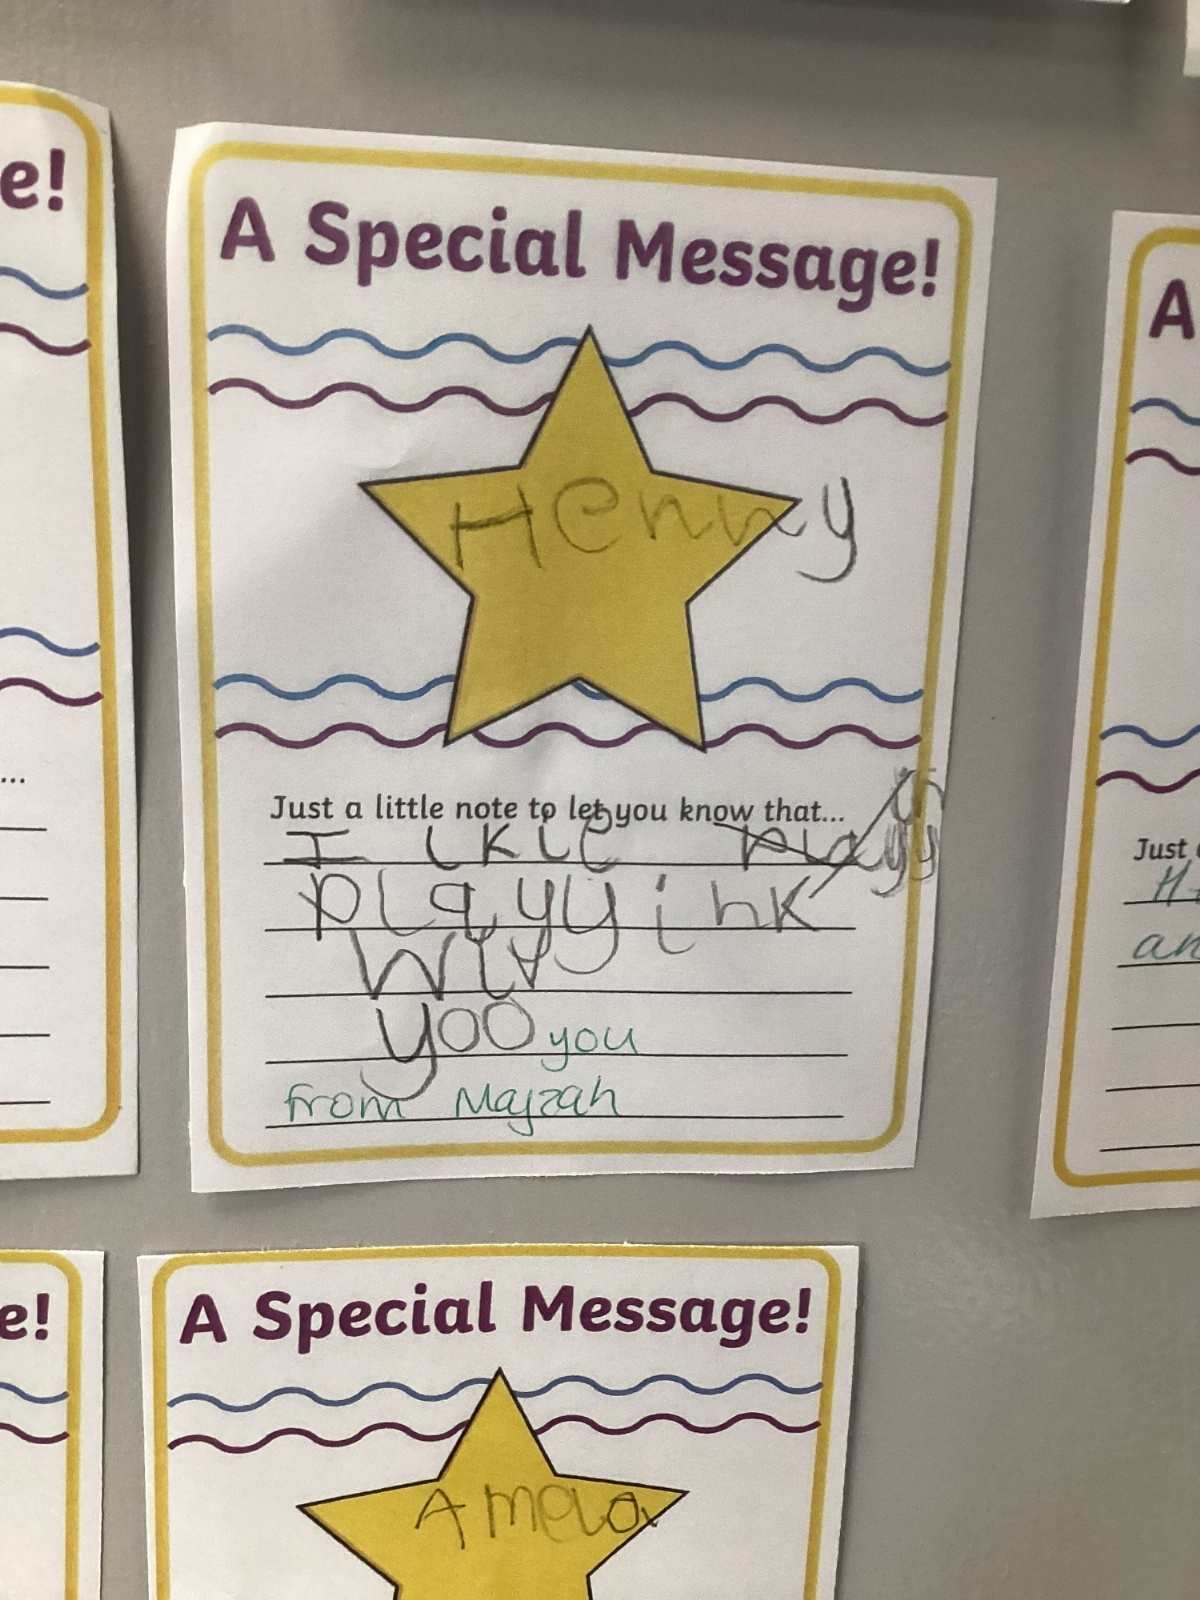 e!
...
A Special Message!
Henny
Just a little note to let you know that...
I lkie
playyink
wiv
yoo you
from Majzah
A
Just
H
an
e!
A Special Message!
Amela